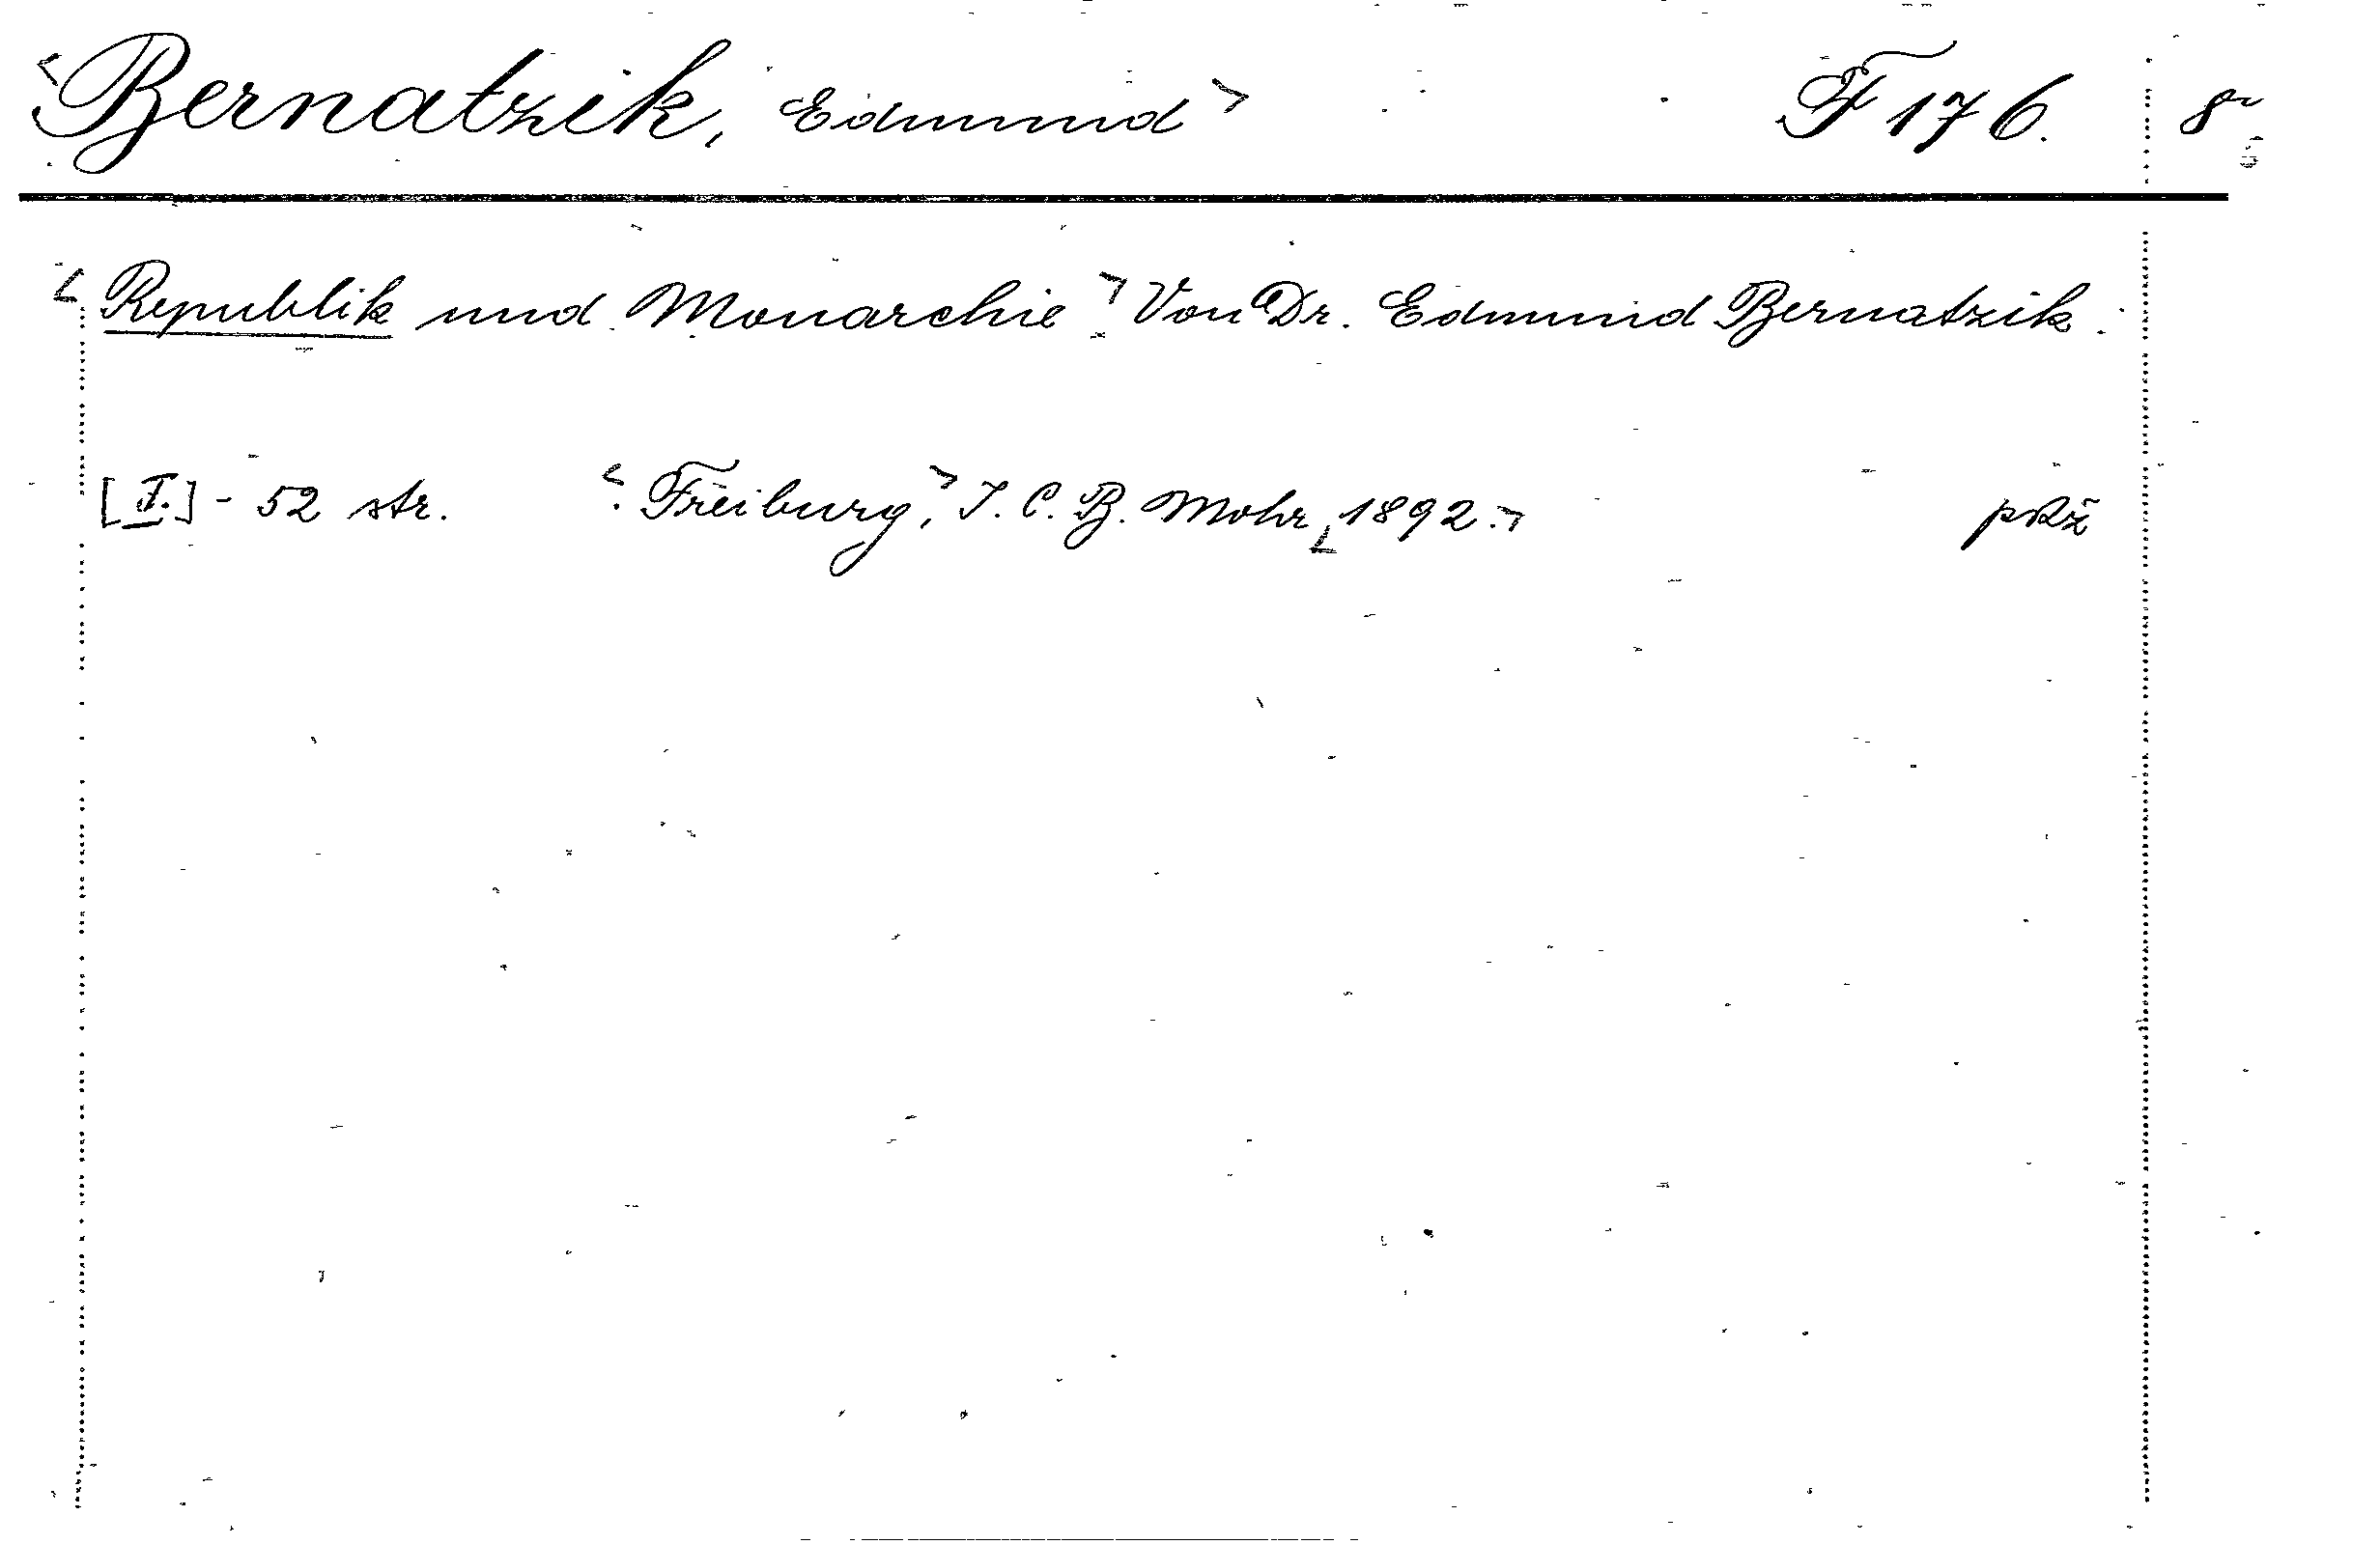 Bernatzik, Edmund F 176. 8°
Republik und Monarchie. Von Dr. Edmund Bernatzik.
[I.] - 52 str. Freiburg, J. C. B. Mohr, 1892.